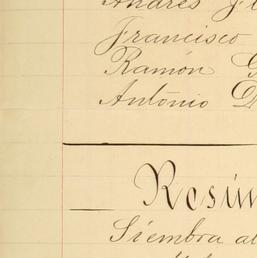 Andrés Fl
Francisco
Ramón G
Antonio
Resúm
Siembra al